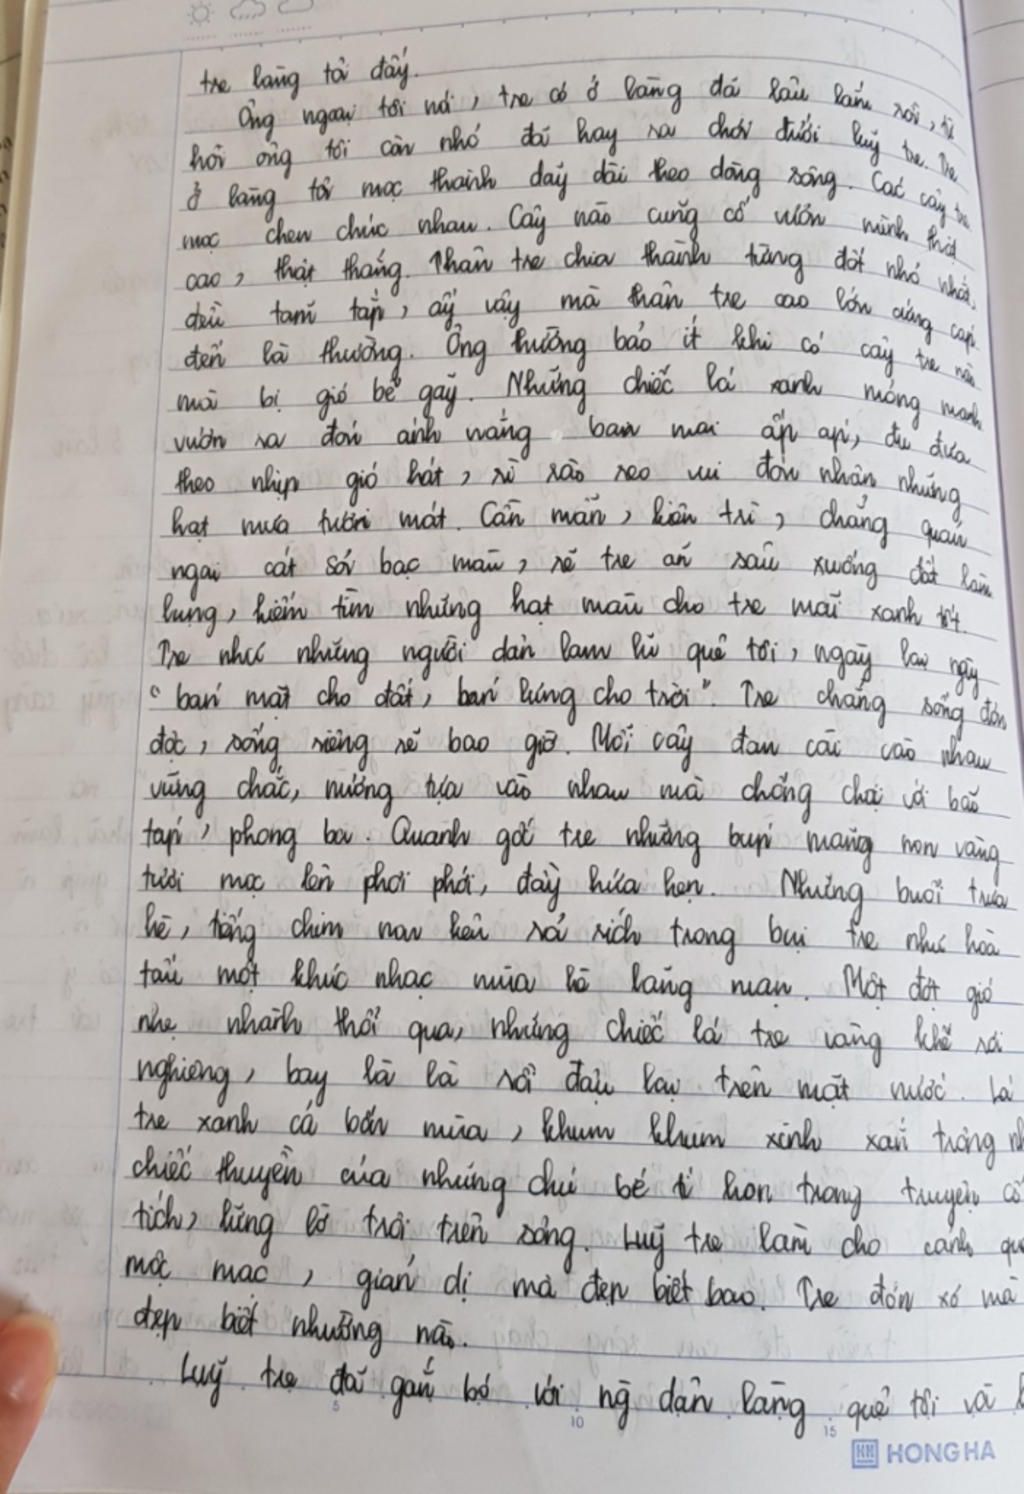 tre làng tôi đấy.
Ông ngoại tôi nói, tre có ở làng đã lâu lắm rồi, từ
hồi ông tôi còn nhỏ đã hay ra chơi dưới luỹ tre. Tre
ở làng tôi mọc thành dãy dài theo dòng sông. Các cây tre
mọc chen chúc nhau. Cây nào cũng cố vươn mình thật
cao, thật thẳng. Thân tre chia thành từng đốt nhỏ nhắn,
đều tăm tắp, ấy vậy mà thân tre cao lớn cứng cáp
đến là thường. Ông thường bảo ít khi có cây tre nào
mà bị gió bẻ gãy. Những chiếc lá xanh mỏng manh
vươn ra đón ánh nắng ban mai ấm áp, đu đưa
theo nhịp gió hát, rì rào reo vui đón nhận những
hạt mưa tươi mát. Cần mẫn, kiên trì, chẳng quản
ngại cát sỏi bạc màu, rễ tre ăn sâu xuống đất lầm
lụng, kiếm tìm những hạt màu cho tre mãi xanh tốt.
Tre như những người dân lam lũ quê tôi, ngày lại ngày
"bán mặt cho đất, bán lưng cho trời". Tre chẳng sống đơn
độc, sống riêng rẽ bao giờ. Mỗi cây đan cài vào nhau
vững chắc, nương tựa vào nhau mà chống chọi với bão
táp, phong ba. Quanh gốc tre những búp măng non vàng
tươi mọc lên phơi phới, đầy hứa hẹn. Những buổi trưa
hè, tiếng chim non kêu rả rích trong bụi tre như hoà
tấu một khúc nhạc mùa hè lãng mạn. Một đợt gió
nhẹ nhành thổi qua, những chiếc lá tre vàng khẽ rơi
nghiêng, bay là là rồi đậu lại trên mặt nước. Lá
tre xanh cả bốn mùa, khum khum xinh xắn trông nh
chiếc thuyền của những chú bé tí hon trong truyện cổ
tích, lững lờ trôi trên sông. Luỹ tre làm cho cảnh quê
mộc mạc, giản dị mà đẹp biết bao. Tre đơn xơ mà
đẹp biết nhường nào.
Luỹ tre đã gắn bó với ng dân làng quê tôi và
5 10 15
HONG HA